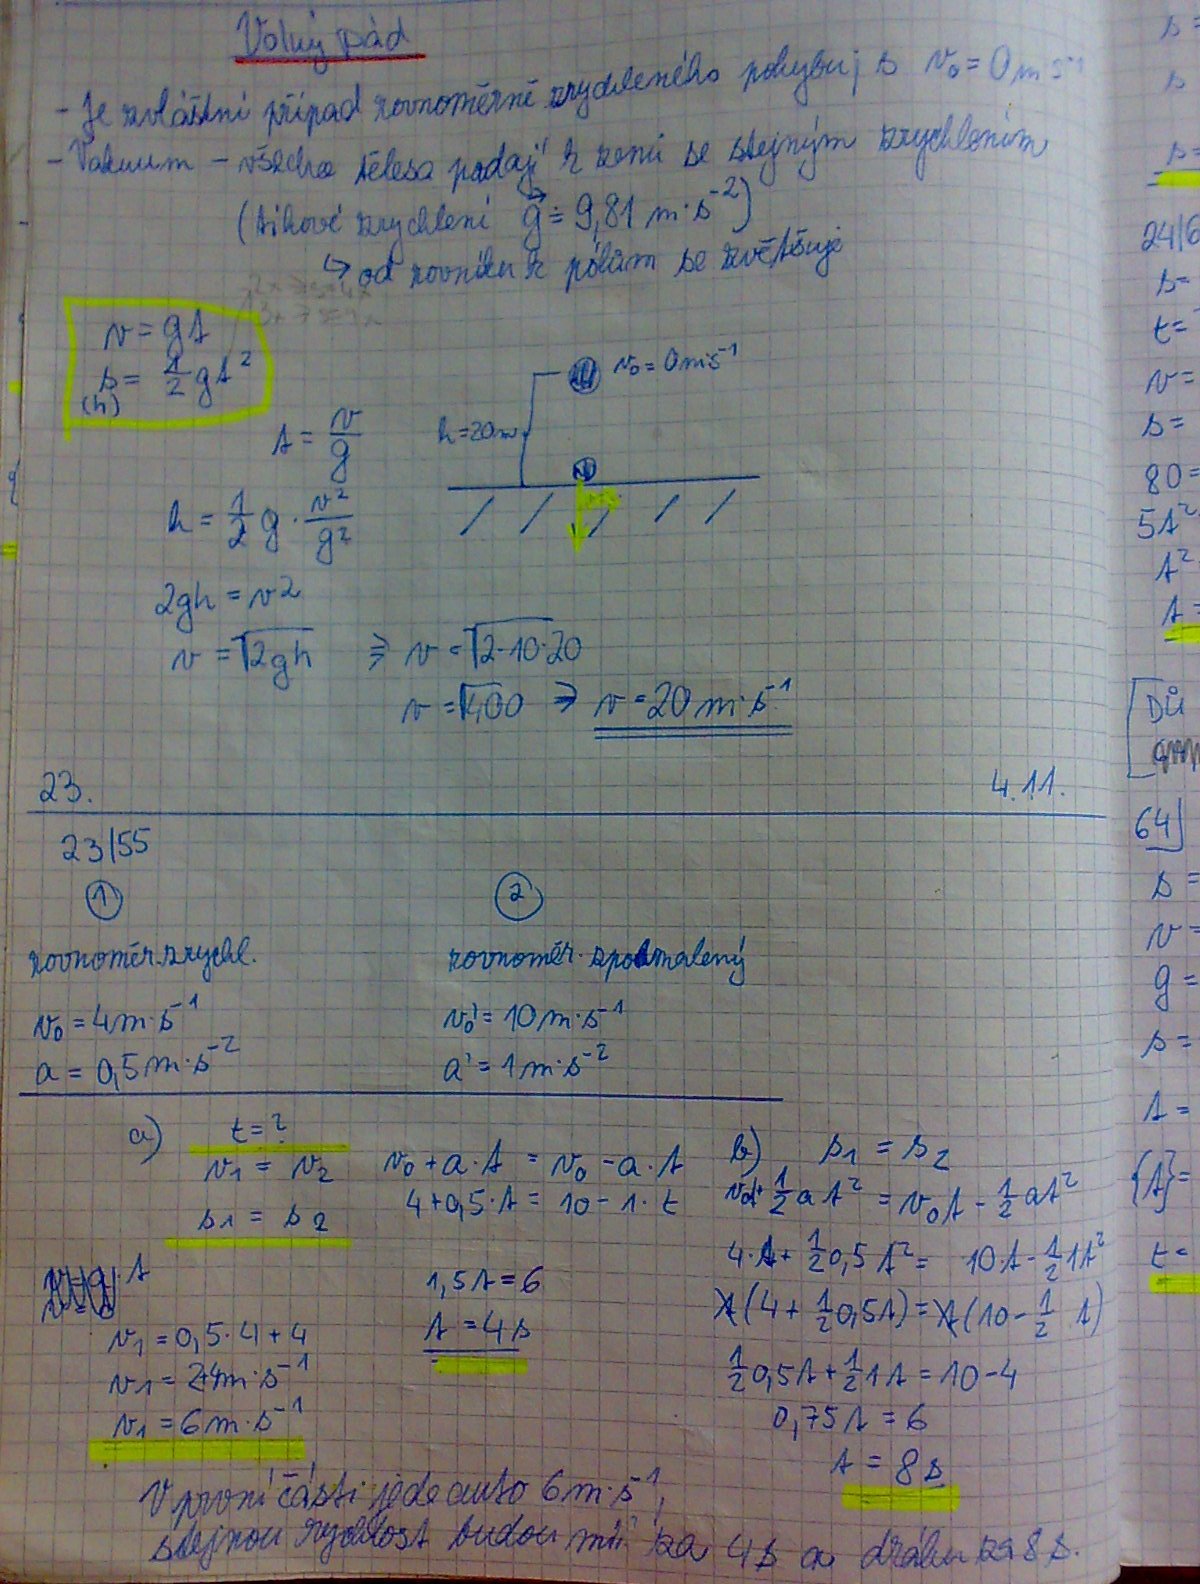 Volný pád
- Je zvláštní případ rovnoměrně zrychleného pohybu, s v₀ = 0 m·s⁻¹
- Vakuum – všechna tělesa padají k zemi se stejným zrychlením
(tíhové zrychlení g ≐ 9,81 m·s⁻²)
↳ od rovníku k pólům se zvětšuje
v = gt
s = 1/2 gt²
(h)
v₀ = 0 m·s⁻¹
h = 20m
t = v/g
h = 1/2 g · v²/g²
2gh = v2
v = √2gh ⇒ v = √2·10·20
v = √400 ⇒ v = 20 m·s⁻¹
23. 4.11.
23/55
① ②
rovnoměr. zrychl. rovnoměr. zpomalený
v₀ = 4m·s⁻¹ v₀' = 10m·s⁻¹
a = 0,5m·s⁻² a' = 1m·s⁻²
a) t = ?
v₁ = v₂
s₁ = s₂
v₀ + a·t = v₀ - a·t
4+0,5·t = 10 - 1·t
1,5t = 6
t = 4s
v₁ = 0,5·4+4
v₁ = 2+4m·s⁻¹
v₁ = 6m·s⁻¹
b) s₁ = s₂
v₀t + 1/2 at² = v₀t - 1/2 at²
4·t + 1/2 0,5t² = 10t - 1/2 1t²
t(4 + 1/2 0,5t) = t(10 - 1/2 t)
1/2 0,5t + 1/2 1t = 10-4
0,75t = 6
t = 8s
V první části jede auto 6m·s⁻¹,
stejnou rychlost budou mít za 4s a dráhu za 8s.
s=
s
s=
24/6
s=
t=
v=
s=
80=
5t²
t²
t=
DÚ
64
s=
v=
g=
s=
t=
{t}=
t=